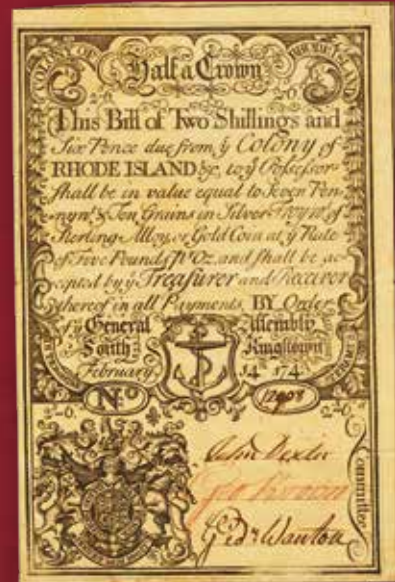 COLONY OF
RHODE ISLAND
Half a Crown
2:6.
This Bill of Two Shillings and
Six Pence due from ẏ Colony of
RHODE ISLAND &c, to ẏ Possessor
shall be in value equal to Seven Pen-
nyᵂᵗ & Ten Grains in Silver Troy ᵂᵗ of
Sterling Alloy, or Gold Coin at ẏ Rate
of Five Pounds pʳ Oz. and shall be ac
cepted by ẏ Treasurer and Receiver
thereof in all Payments BY Order
of ẏ General Assembly
South Kingstown
February 14 174
Nᵒ
2:6.
2:6.
Committee
Geo Brown
Gidⁿ Wanton